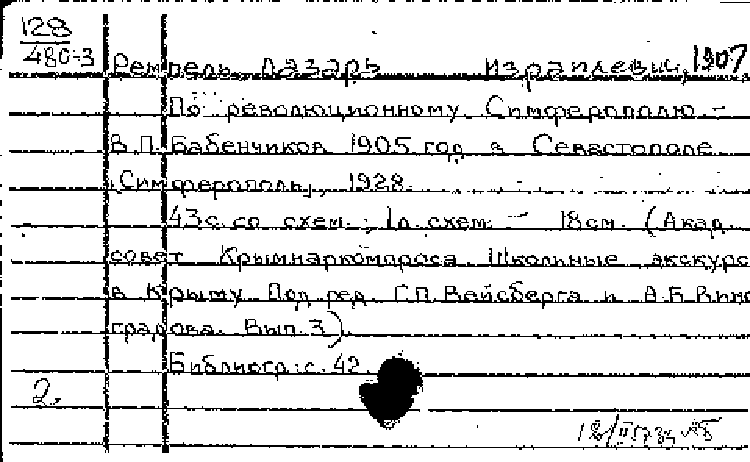 128
480-3
Ремпель Лазарь Израилевич, 1907
По революционному Симферополю. –
В.П. Бабенчиков 1905 год в Севастополе
Симферополь, 1928.
43с. со схем.; 1л. схем. – 18см. (Акад.
совет Крымнаркомпроса. Школьные экскурс
в Крыму. Под ред. Г.П. Вайсберга и А.Б. Вино
градова. Вып. 3).
Библиогр.: с. 42.
2.